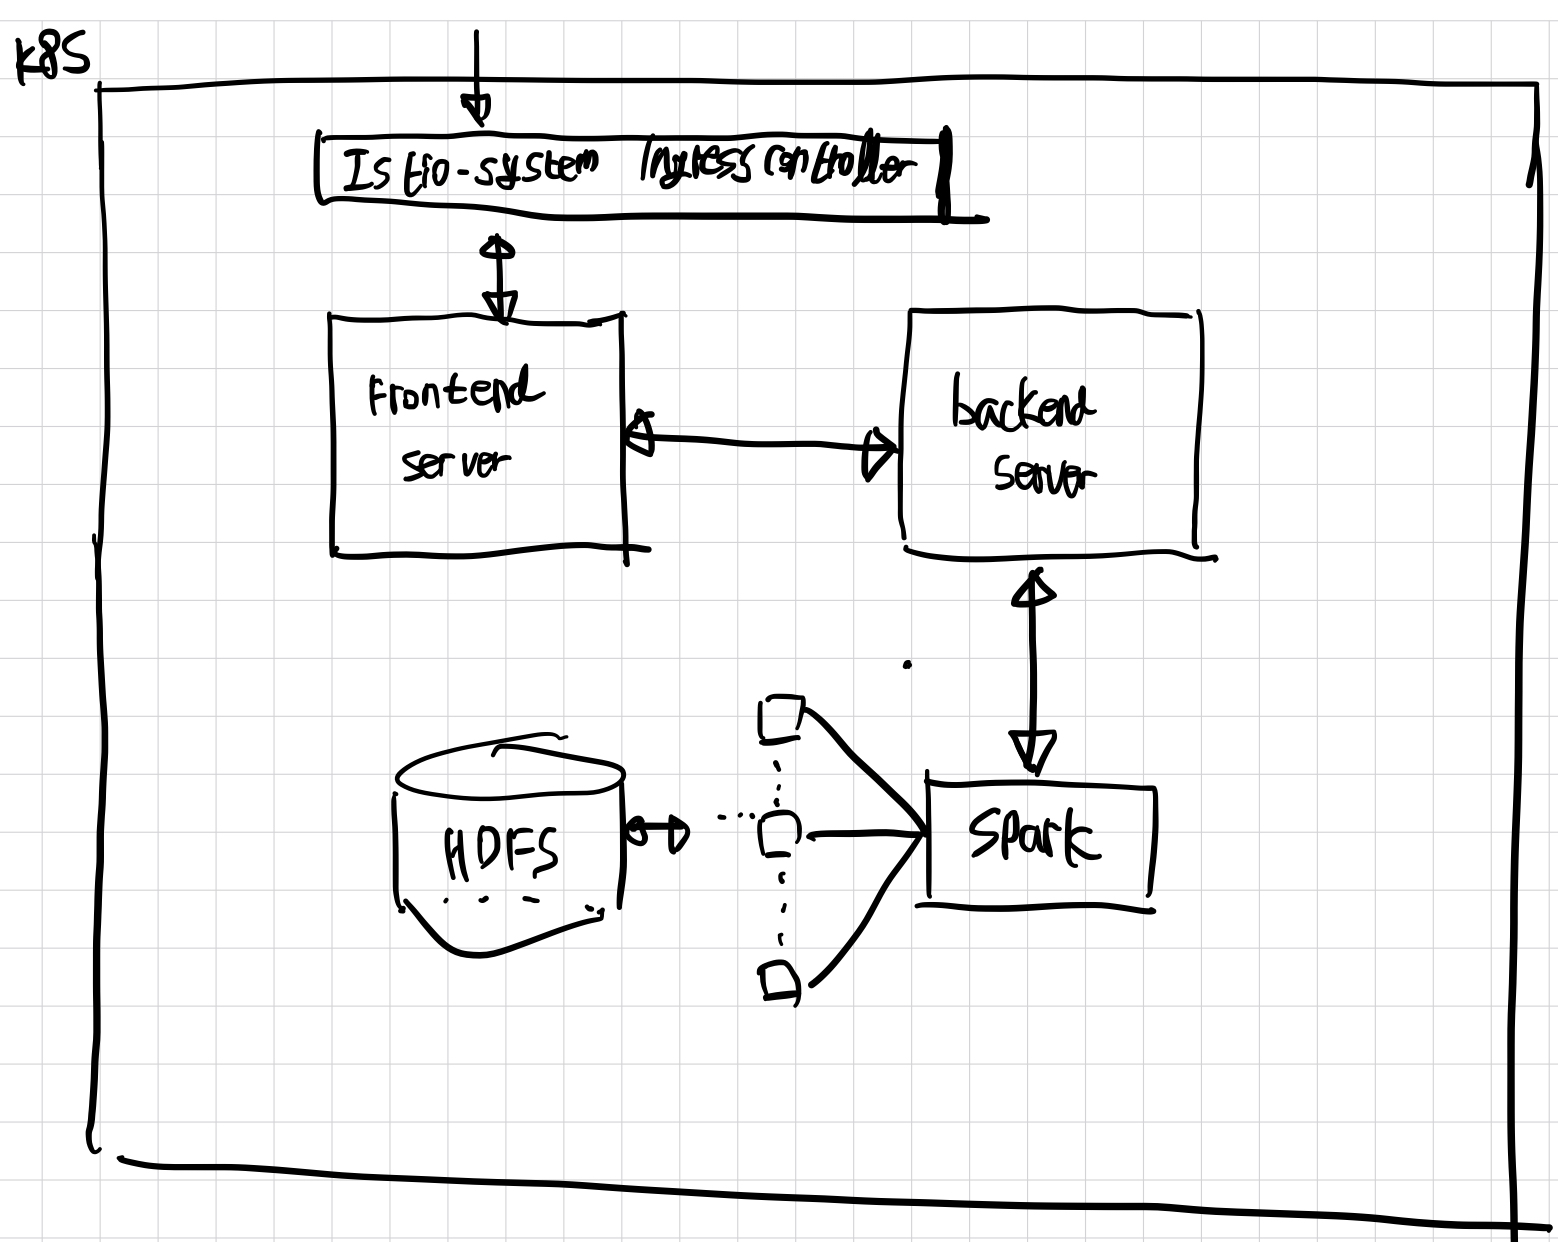 k8S
Istio-system Ingress controller
Frontend
server
backend
server
HDFS
Spark